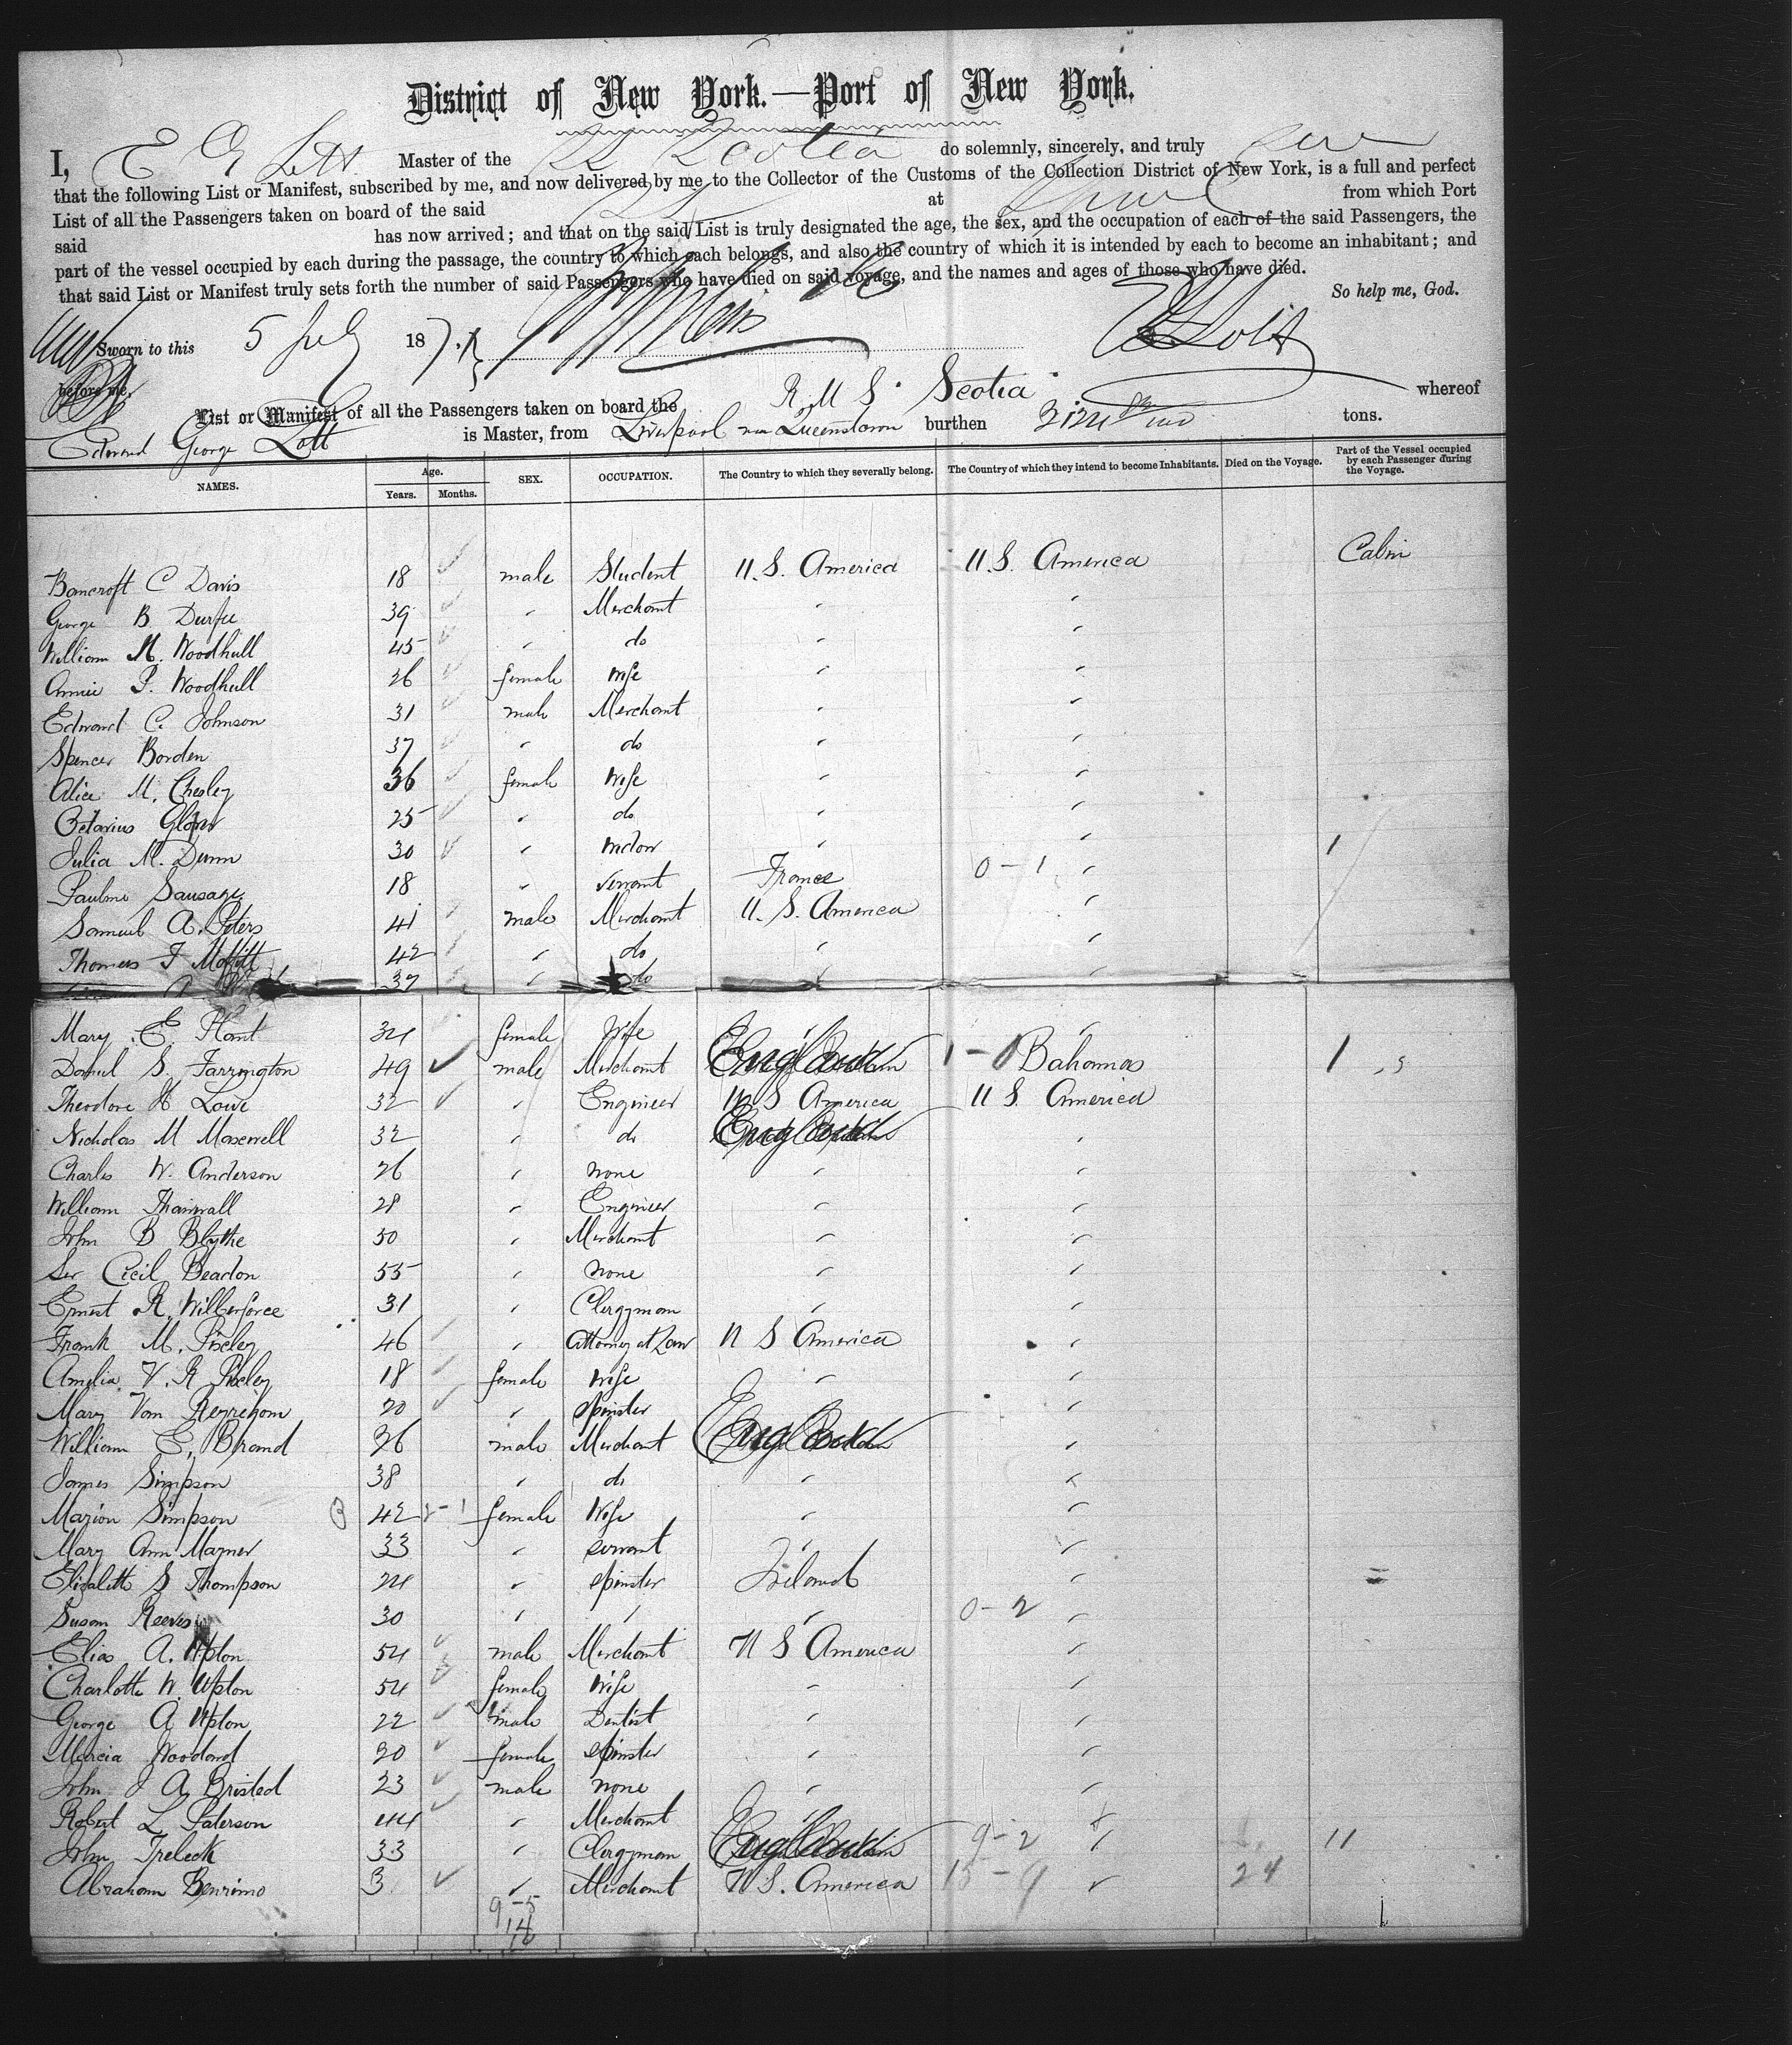 District of New York.—Port of New York.
I, E G Lott Master of the SS Scotia do solemnly, sincerely, and truly
that the following List or Manifest, subscribed by me, and now delivered by me to the Collector of the Customs of the Collection District of New York, is a full and perfect
List of all the Passengers taken on board of the said at from which Port
said has now arrived; and that on the said List is truly designated the age, the sex, and the occupation of each of the said Passengers, the
part of the vessel occupied by each during the passage, the country to which each belongs, and also the country of which it is intended by each to become an inhabitant; and
that said List or Manifest truly sets forth the number of said Passengers who have died on said voyage, and the names and ages of those who have died.
So help me, God.
Sworn to this 5 July 187 E G Lott
before me,
List or Manifest of all the Passengers taken on board the R M S Scotia whereof
Edward George Lott is Master, from Liverpool via Queenstown burthen tons.
NAMES. Age. Years. Months. SEX. OCCUPATION. The Country to which they severally belong. The Country of which they intend to become Inhabitants. Died on the Voyage. Part of the Vessel occupied by each Passenger during the Voyage.
Bancroft C Davis 18 male Student U.S. America U.S. America Cabin
George B Durfee 39 " Merchant " "
William M. Woodhull 45 " do " "
Annie P. Woodhull 26 female wife " "
Edward C. Johnson 31 male Merchant " "
Spencer Borden 37 " do " "
Alice M. Chesley 36 female wife " "
Octavius 25 " do " "
Julia M. Dunn 30 " widow " " 1
Pauline Sausage 18 " servant France 0-1 "
Samuel A. Peters 41 male Merchant U.S. America "
Thomas F Moffitt 42 " do " "
37 " do " "
Mary E. Plant 34 female Wife " "
Daniel S. Farrington 49 male Merchant England 1-0 Bahamas 1
Theodore H Lowe 32 " Engineer U S America U S. America
Nicholas M Maxwell 32 " do England "
Charles W. Anderson 26 " none " "
William Thairwall 28 " Engineer " "
John B Blythe 50 " Merchant " "
Sir Cecil Beadon 55 " none " "
Ernest R. Wilberforce 31 " Clergyman " "
Frank M. Pixley 46 " Attorney at Law U S America "
Amelia V. R Pixley 18 female wife " "
Mary Van Reynegom 20 " spinster " "
William E. Brand 36 male Merchant England "
James Simpson 38 " do " "
Marion Simpson 42 female Wife " "
Mary Ann Marner 33 " servant " "
Elizabeth S Thompson 24 " spinster Ireland "
Susan Reeves 30 " " " 0-2 "
Elias A. Upton 54 male Merchant U S America "
Charlotte W. Upton 54 female Wife " "
George A Upton 22 male Dentist " "
Marcia Woodard 20 female spinster " "
John J A Bristed 23 male none " "
Robert L Paterson 44 " Merchant " "
John Treleck 33 " Clergyman England 9-2 " 11
Abraham Benrimo 3 " Merchant U S. America 15-9 " 24
9-5
14